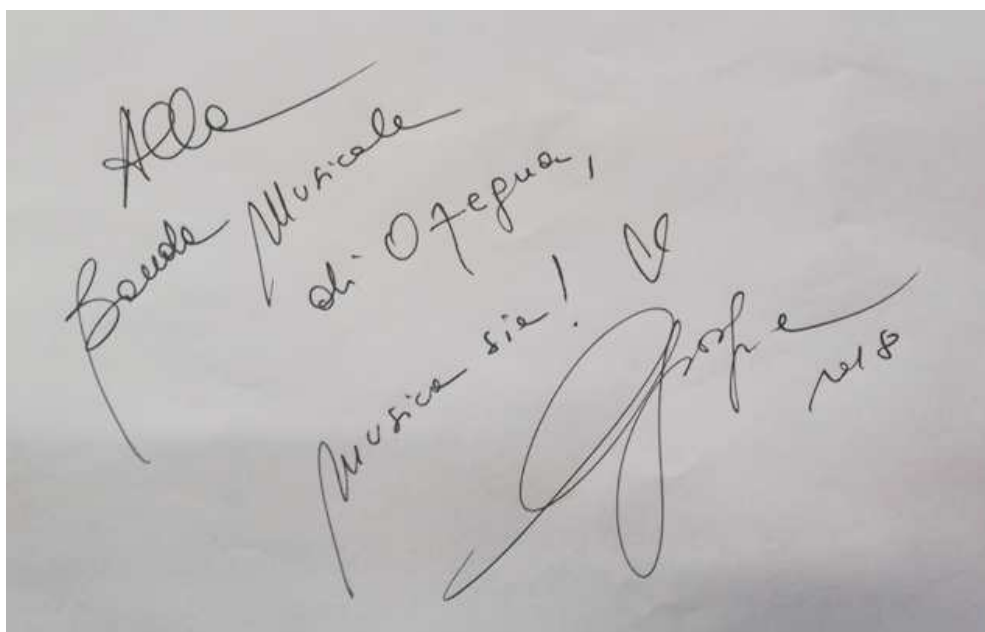 Alla
Banda Musicale
di Ozegna,
Musica sia! ♡
2018